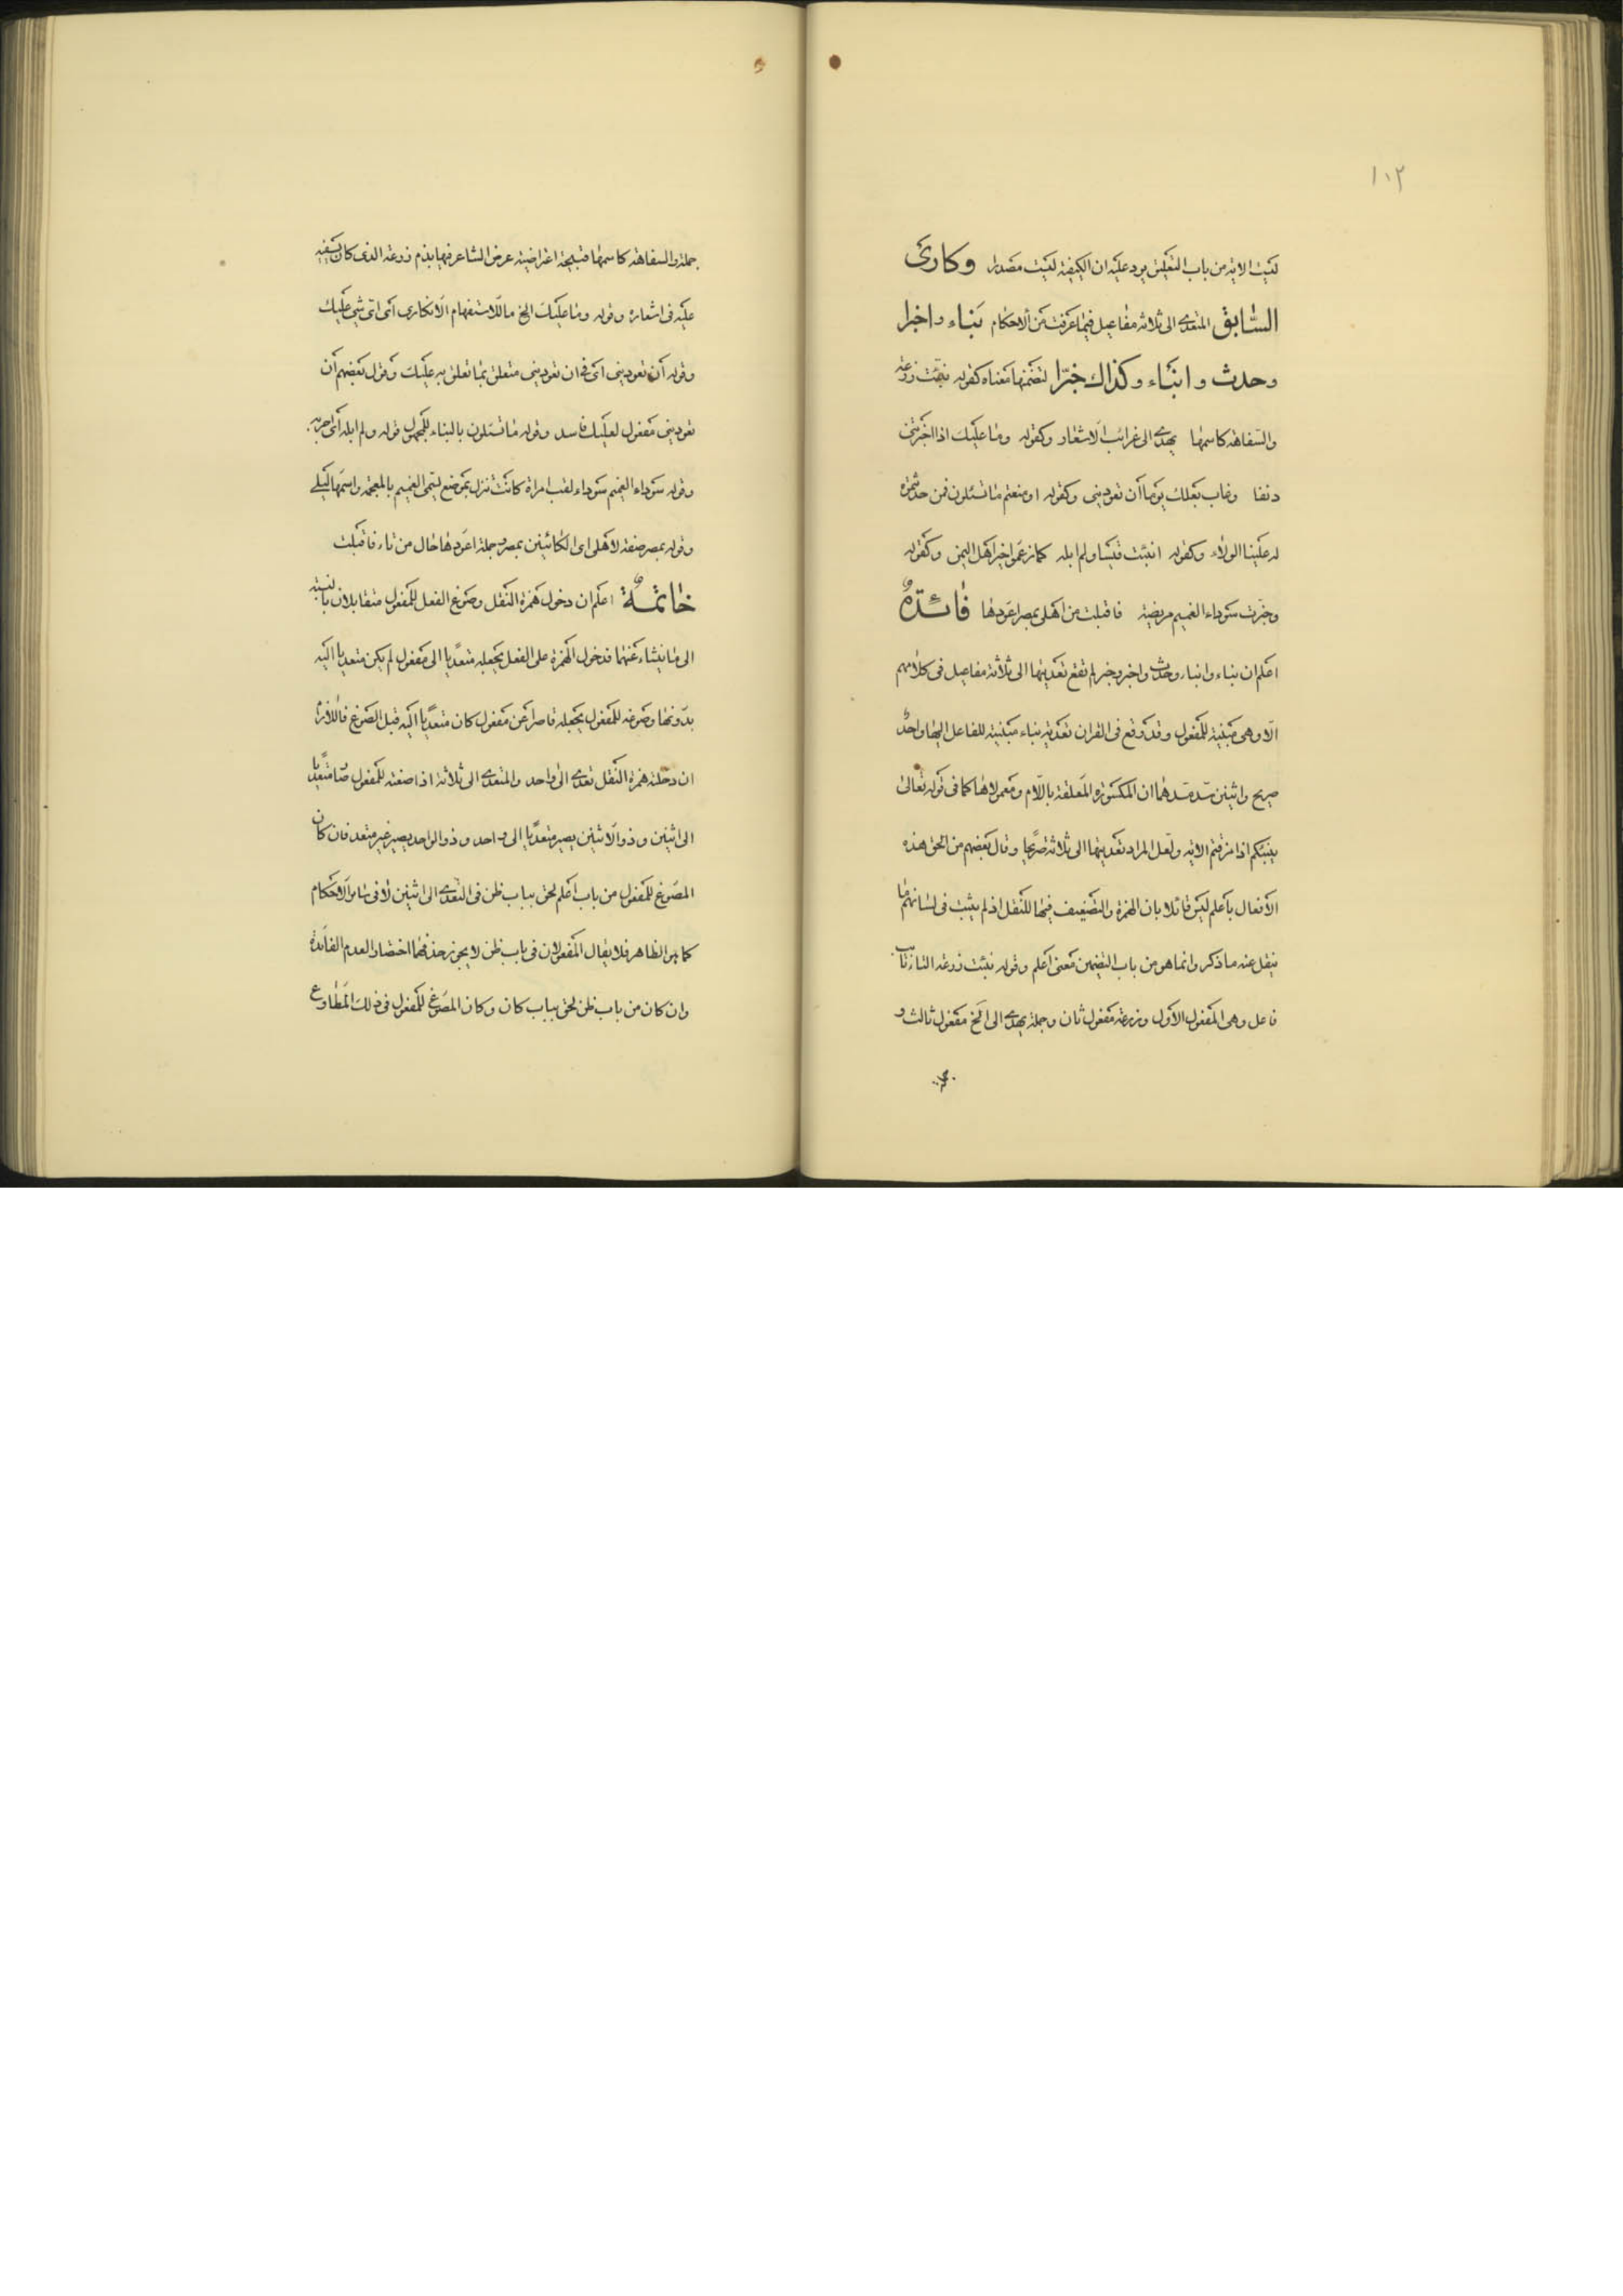 ١٠٢
ليست الاية من باب التعليق يرد عليه ان الكيفية ليست مصدرا وكارى
السّابق المتعدى الى ثلاثة مفاعيل فيما عرفت من الاحكام نباء واخبرا
وحدث وانباء وكذاك خبّرا لتضمنها معناه كقوله نبئت زرعة
والسّفاهة كاسمها يهدى الى غرائب الاشعار وكقوله وما عليك اذا اخبرتنى
دنفا وغاب بعلك يوما أن تعودينى وكقوله او منعتم ما تسئلون فمن حدثتموه
له علينا الولاء وكقوله انبئت قيسا ولم ابله كما زعموا خير اهل اليمن وكقوله
وخبّرت سوداء الغميم مريضة فاقبلت من اهلى بمصر اعودها فائدة
اعلم ان نباء وانباء وحدث واخبر وخبر لم تقع تعديتها الى ثلاثة مفاعيل فى كلامهم
الّا وهى مبنية للمفعول وقد وقع فى القران تعدية نباء مبنية للفاعل اليها واحد
صريح واثنين سدّ مسدهما ان المكسورة المعلقة باللّام ومعمولاها كما فى قوله تعالى
ينبئكم اذا مزقتم الاية ولعل المراد تعديتها الى ثلاثة صريحا وقال بعضهم من الحق هذه
الافعال باعلم ليس قائلا بان الهمزة والتضعيف فيها للنقل اذ لم يثبت فى لسانهم ما
ينقل عنه ما ذكر وانما هو من باب التضمين معنى اعلم وقوله نبئت زرعة التاء نائب
فاعل وهى المفعول الاول وزرعة مفعول ثان وجملة يهدى الى الخ مفعول ثالث و
جملة والسفاهة كاسمها قبيحة اعتراضية عرض الشاعر فيها بذم زرعة الذى كان يسفه
عليه فى اشعاره وقوله وما عليك الخ ما للاستفهام الانكارى اى اىّ شئ عليك
وقوله أن تعودينى اى فى ان تعودينى متعلق بما تعلق به عليك وقول بعضهم أن
تعودينى مفعول لعليك فاسد وقوله ما تسئلون بالبناء للمجهول قوله ولم ابله اى اجربه
وقوله سوداء الغميم سوداء لقب امراة كانت تنزل بموضع يسمى الغميم بالمعجمة واسمها ليلى
وقوله بمصر صفة لاهلى اى الكائنين بمصر وجملة اعودها حال من تاء فاقبلت
خاتمة اعلم ان دخول همزة النقل وصوغ الفعل للمفعول متقابلان بالنسبة
الى ما ينشاء عنهما فدخول الهمزة على الفعل يجعله متعدّيا الى مفعول لم يكن متعديا اليه
بدونها وصوغه للمفعول يجعله قاصرا عن مفعول كان متعدّيا اليه قبل الصوغ فاللازم
ان دخلته همزة النقل تعدى الى واحد والمتعدى الى ثلاثة اذا صغته للمفعول صار متعدّيا
الى اثنين وذو الاثنين يصير متعدّيا الى واحد وذو الواحد يصير غير متعد فان كان
المصوغ للمفعول من باب اعلم لحق بباب ظن فى التعدى الى اثنين لا فى سائر الاحكام
كما هو الظاهر فلا يقال المفعولان فى باب ظن لا يجوز حذفهما اختصارا لعدم الفائدة
وان كان من باب ظن لحق بباب كان وكان المصوغ للمفعول فى ذلك المطاوع